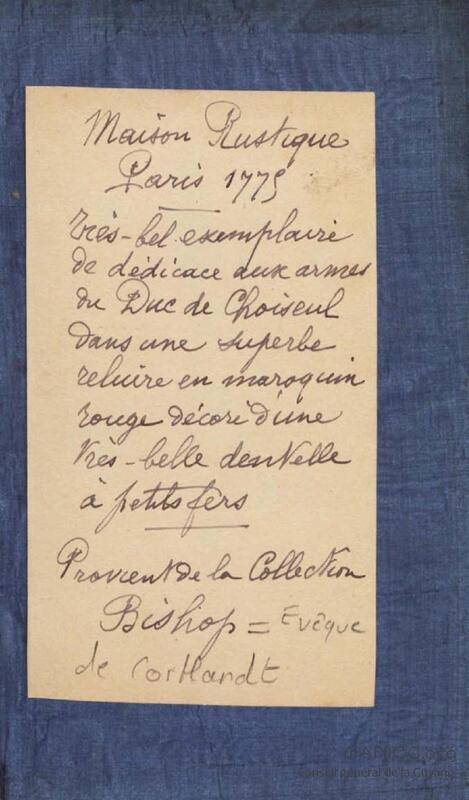 Maison Rustique
Paris 1775
très-bel exemplaire
de dédicace aux armes
du Duc de Choiseul
dans une superbe
reluire en maroquin
rouge décoré d'une
très-belle dentelle
à petits fers
Provient de la Collection
Bishop = Evêque
de Cortlandt
MANIOC.org
Conseil général de la Guyane